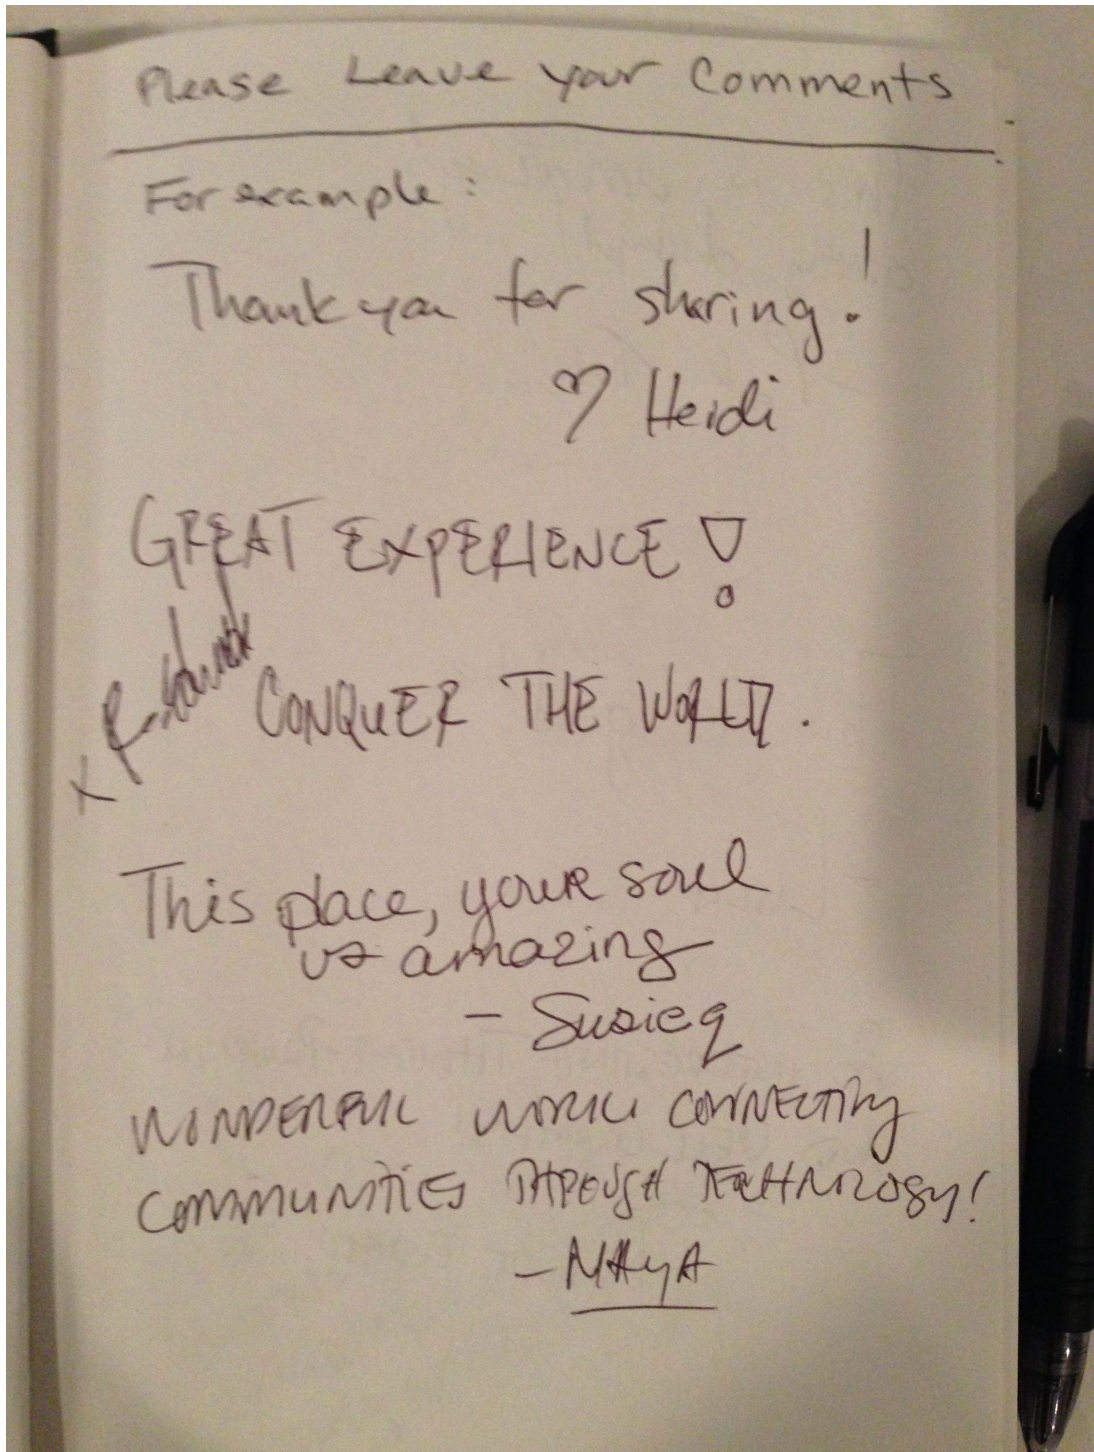 Please Leave your Comments
For example:
Thank you for sharing!
♡ Heidi
GREAT EXPERIENCE!
CONQUER THE WORLD.
This place, your soul
is amazing
- Susieq
WONDERFUL WORK CONNECTING
COMMUNITIES THROUGH TECHNOLOGY!
- MAYA